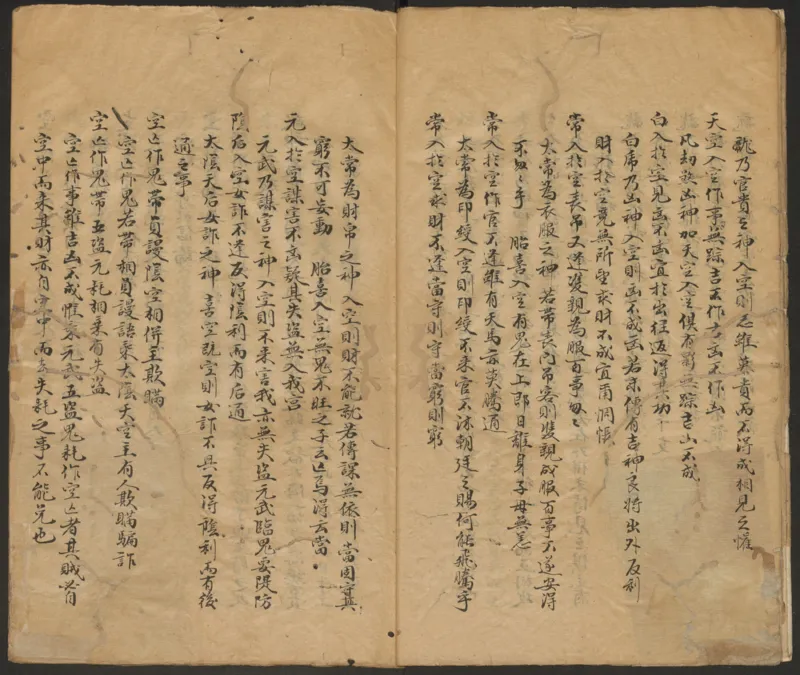 龍乃官貴之神入空則忌雖慕貴而不得成相見之懽
天空入空作事無踪吉不作吉凶不作凶
凡刼煞凶神加天空入空俱有聲無踪吉凶不成
白入於空見凶不凶宜於出往返得其功
白虎乃凶神入空則凶不成凶若末傳有吉神良將出外反利
財入於空竟無所望求財不成宜甭惆悵
常入於空喪吊又逢雙親為服百事
太常為衣服之神若帶喪門吊客則雙親成服百事不遂安得
不
乎 胎喜入空有鬼在上郎日難身子母無恙
常入於空作官不逢雖有天馬亦莫騰通
太常為印綬入空則印綬不來官不沐朝廷之賜何能飛騰乎
常入於空求財不逢當守則守當窮則窮
太常為財帛之神入空則財不能就若傳課無依則當固守其
窮不可妄動 胎喜入空無鬼不旺之子云亡焉得云當
元入於空謀害不凶疑其失盜無入我宮
元武乃謀害之神入空則不來害我亦無失盜元武臨鬼要隄防
陰后入空女詐不逢反得陰利而有后通
太陰天后女詐之神喜空既空則女詐不具反得陰利而有後
通之事
空亡作鬼帶貞謾陰空相併主欺瞞
空亡作鬼若帶相貞謾語乘太陰天空主有人欺瞞騙詐
空亡作鬼帶五盜元耗相乘有失盜
空亡作事雖吉凶不成惟乘元武五盜鬼耗作空亡者其賊必自
空中而來其財亦自空中而去失耗之事不能免也